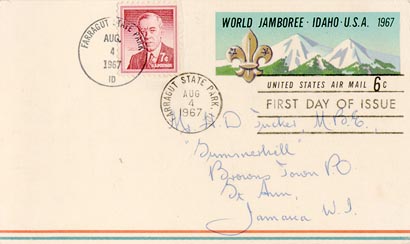 FARRAGUT STATE PARK
AUG
4
1967
ID
7¢
WORLD JAMBOREE · IDAHO · U.S.A. 1967
UNITED STATES AIR MAIL 6c
FIRST DAY OF ISSUE
FARRAGUT STATE PARK,
AUG
4
1967
D Tucker, M.B.E.,
"Summerhill"
Browns Town P.O.
St Ann,
Jamaica W.I.